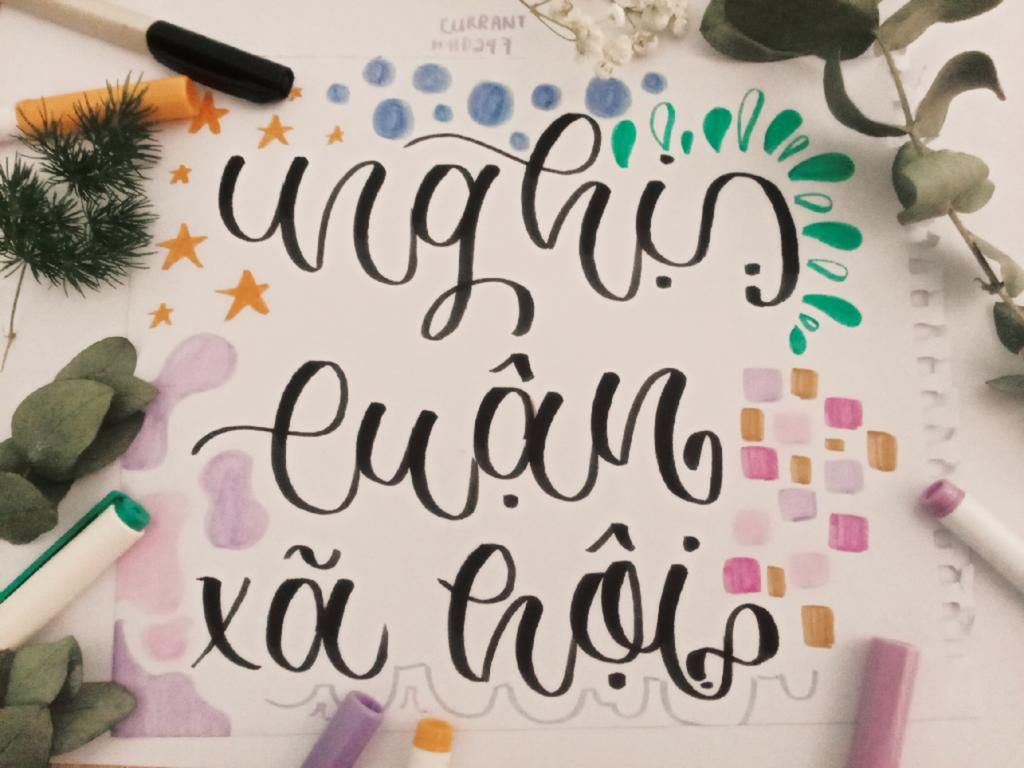 CURRANT
nghị
luận
xã hội